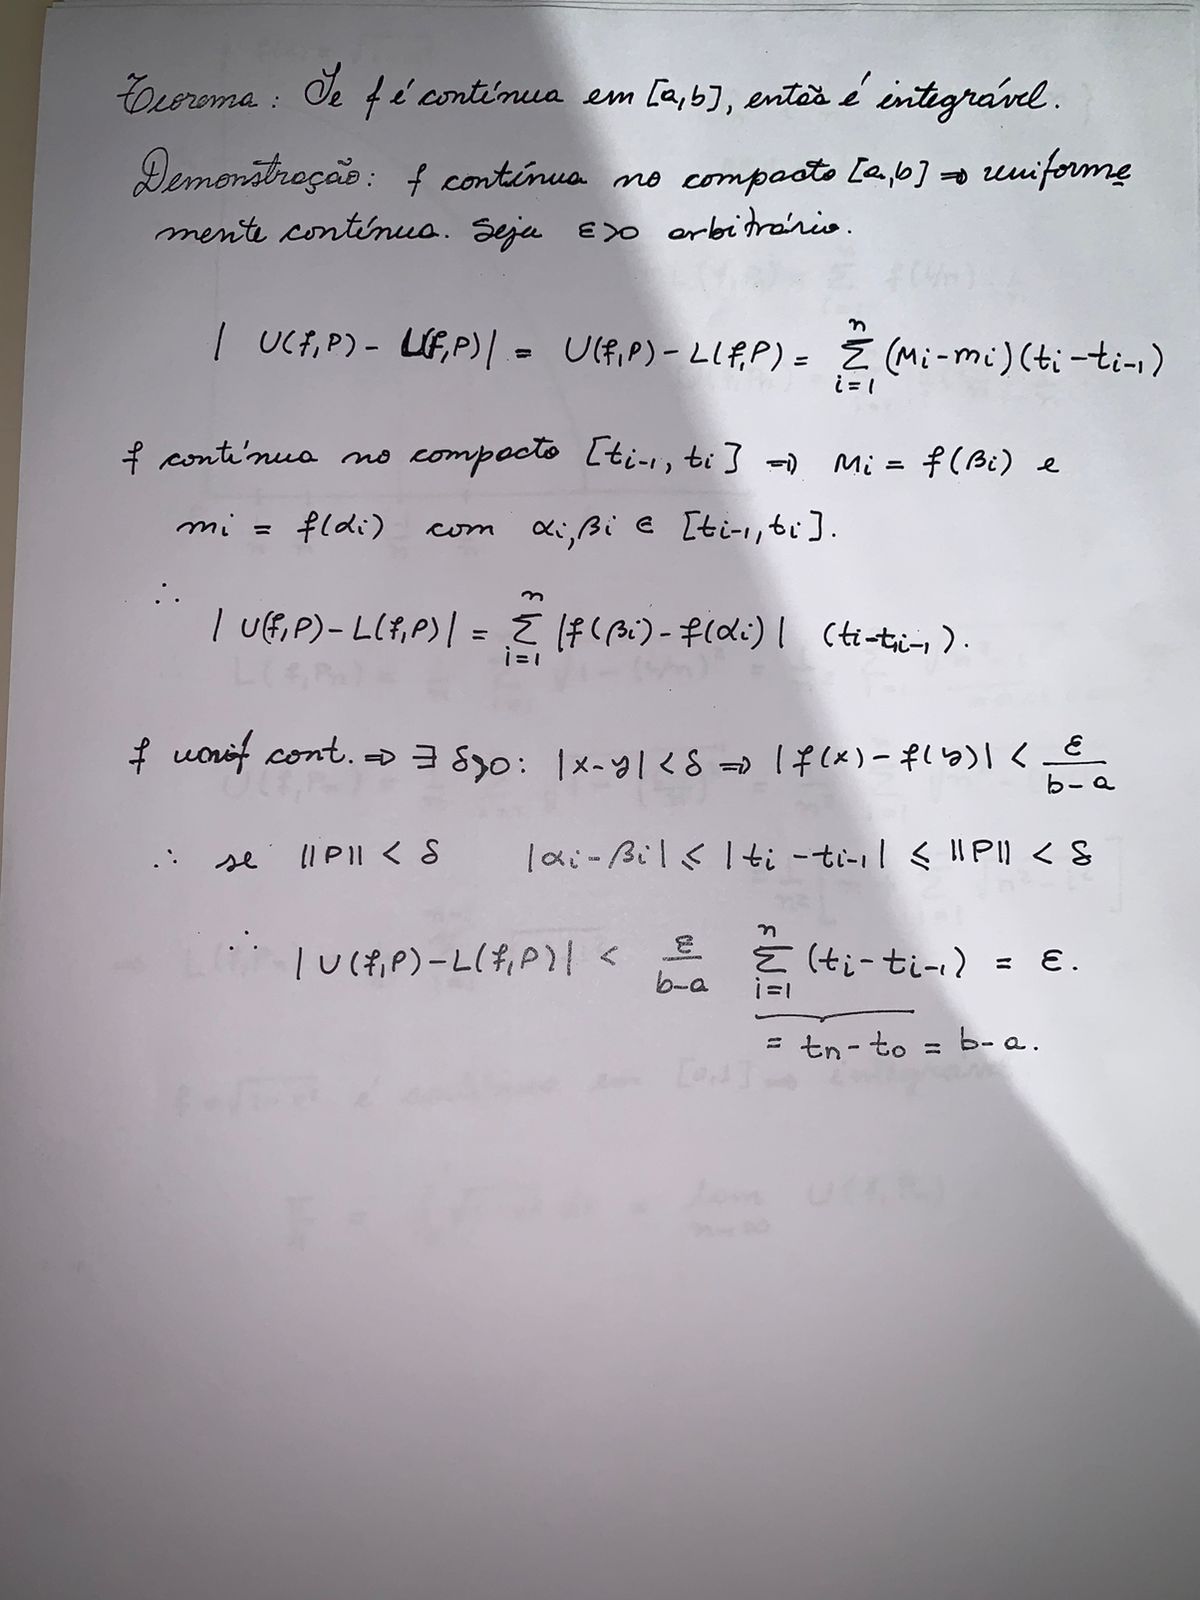 Teorema: Se f é contínua em [a,b], então é integrável.
Demonstração: f contínua no compacto [a,b] ⇒ uniforme
mente contínua. Seja ε>0 arbitrário.
| U(f,P) - L(f,P)| = U(f,P) - L(f,P) = ∑_{i=1}^{n} (Mi - mi)(ti - ti-1)
f contínua no compacto [ti-1, ti] ⇒ Mi = f(βi) e
mi = f(αi) com αi,βi ∈ [ti-1,ti].
∴ | U(f,P) - L(f,P) | = ∑_{i=1}^{n} |f(βi) - f(αi)| (ti - ti-1).
f unif cont. ⇒ ∃ δ>0: |x-y| < δ ⇒ |f(x) - f(y)| < ε/(b-a)
∴ se ||P|| < δ |αi - βi| ≤ |ti - ti-1| ≤ ||P|| < δ
∴ | U(f,P) - L(f,P)| < ε/(b-a) ∑_{i=1}^{n} (ti - ti-1) = ε.
= tn - to = b-a.